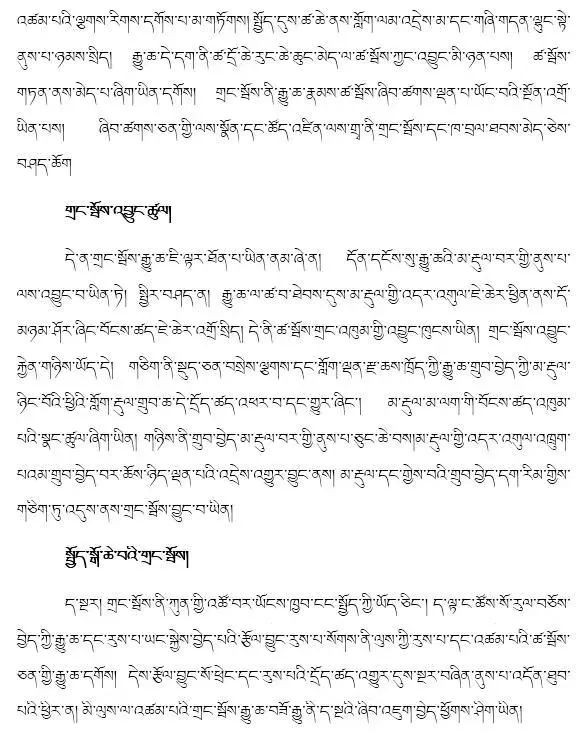 འཚམ་པའི་ལྕགས་རིགས་དགོས་པ་མ་གཏོགས། སྤྱོད་དུས་ཚ་ཆེ་ནས་གློག་ལམ་འདྲེས་མ་དང་གཞི་གདན་ལྷུང་སྟེ་
ནུས་པ་ཉམས་སྲིད། རྒྱུ་ཆ་དེ་དག་ནི་ཚ་དྲོ་ཆེ་རུང་ཆེ་ཆུང་མེད་ལ་ཚ་སྦོས་ཀྱང་འབྱུང་མི་ཉན་པས། ཚ་སྦོས་
གཏན་ནས་མེད་པ་ཞིག་ཡིན་དགོས། གྲང་སྦོས་ནི་རྒྱུ་ཆ་རྣམས་ཚ་སྦོས་ཞིབ་ཚགས་ལྡན་པ་ཡོང་བའི་སྔོན་འགྲོ་
ཡིན་པས། ཞིབ་ཚགས་ཅན་གྱི་ལས་སྣོན་དང་ཚོད་འཛིན་ལས་གྲྭ་ནི་གྲང་སྦོས་དང་ཁ་བྲལ་ཐབས་མེད་ཅེས་
བཤད་ཆོག
གྲང་སྦོས་འབྱུང་ཚུལ།
དེ་ན་གྲང་སྦོས་རྒྱུ་ཆ་ཇི་ལྟར་ཐོན་པ་ཡིན་ནམ་ཞེ་ན། དོན་དངོས་སུ་རྒྱུ་ཆའི་མ་རྡུལ་བར་གྱི་ནུས་པ་
ལས་འབྱུང་བ་ཡིན་ཏེ། སྤྱིར་བཤད་ན། རྒྱུ་ཆ་ལ་ཚ་བ་ཐེབས་དུས་མ་རྡུལ་གྱི་འདར་འགུལ་ཇེ་ཆེར་ཕྱིན་ནས་དོ་
མཉམ་ཤོར་ཞིང་བོངས་ཚད་ཇེ་ཆེར་འགྲོ་སྲིད། དེ་ནི་ཚ་སྦོས་གྲང་འཁུམ་གྱི་འབྱུང་ཁུངས་ཡིན། གྲང་སྦོས་འབྱུང་
རྐྱེན་གཉིས་ཡོད་དེ། གཅིག་ནི་སྡུད་ཅན་བསྲེས་ལྕགས་དང་གློག་ལྡན་རྫ་ཆས་ཁྲོད་ཀྱི་རྒྱུ་ཆ་གྲུབ་བྱེད་ཀྱི་མ་རྡུལ་
ཉིང་བོའི་ཕྱིའི་གློག་རྡུལ་གྲུབ་ཆ་དེ་དྲོད་ཚད་འཕར་བ་དང་གྱུར་ཞིང་། མ་རྡུལ་མ་ལག་གི་བོངས་ཚད་འཁུམ་
པའི་སྣང་ཚུལ་ཞིག་ཡིན། གཉིས་ནི་གྲུབ་བྱེད་མ་རྡུལ་བར་གྱི་ནུས་པ་ཅུང་ཆེ་བས།མ་རྡུལ་གྱི་འདར་འགུལ་འཁྲུག་
པའམ་གྲུབ་བྱེད་བར་ཆོས་ཉིད་ལྡན་པའི་འདྲེས་འགྱུར་བྱུང་ནས། མ་རྡུལ་དང་གྱེས་བའི་གྲུབ་བྱེད་དག་རིམ་གྱིས་
གཅིག་ཏུ་འདུས་ནས་གྲང་སྦོས་བྱུང་བ་ཡིན།
སྤྱོད་སྒོ་ཆེ་བའི་གྲང་སྦོས།
ད་སྔར། གྲང་སྦོས་ནི་ཀུན་གྱི་འཚོ་བར་ཡོངས་ཁྱབ་ངང་སྤྱོད་ཀྱི་ཡོད་ཅིང་། ད་ལྟ་ང་ཚོས་སོ་རུལ་བཅོས་
བྱེད་ཀྱི་རྒྱུ་ཆ་དང་རུས་པ་ཡང་སྐྱེས་བྱེད་པའི་རྩོལ་བྱུང་རུས་པ་སོགས་ནི་ལུས་ཀྱི་རུས་པ་དང་འཚམ་པའི་ཚ་སྦོས་
ཅན་གྱི་རྒྱུ་ཆ་དགོས། དེས་རྩོལ་བྱུང་སོ་ཕྲེང་དང་རུས་པའི་དྲོད་ཚད་འགྱུར་དུས་སྔར་བཞིན་ནུས་པ་འདོན་ཐུབ་
པའི་ཕྱིར་ན། མི་ལུས་ལ་འཚམ་པའི་གྲང་སྦོས་རྒྱུ་ཆ་བཟོ་རྒྱུ་ནི་ད་སྔའི་ཞིབ་འཇུག་བྱེད་ཕྱོགས་ཤིག་ཡིན།